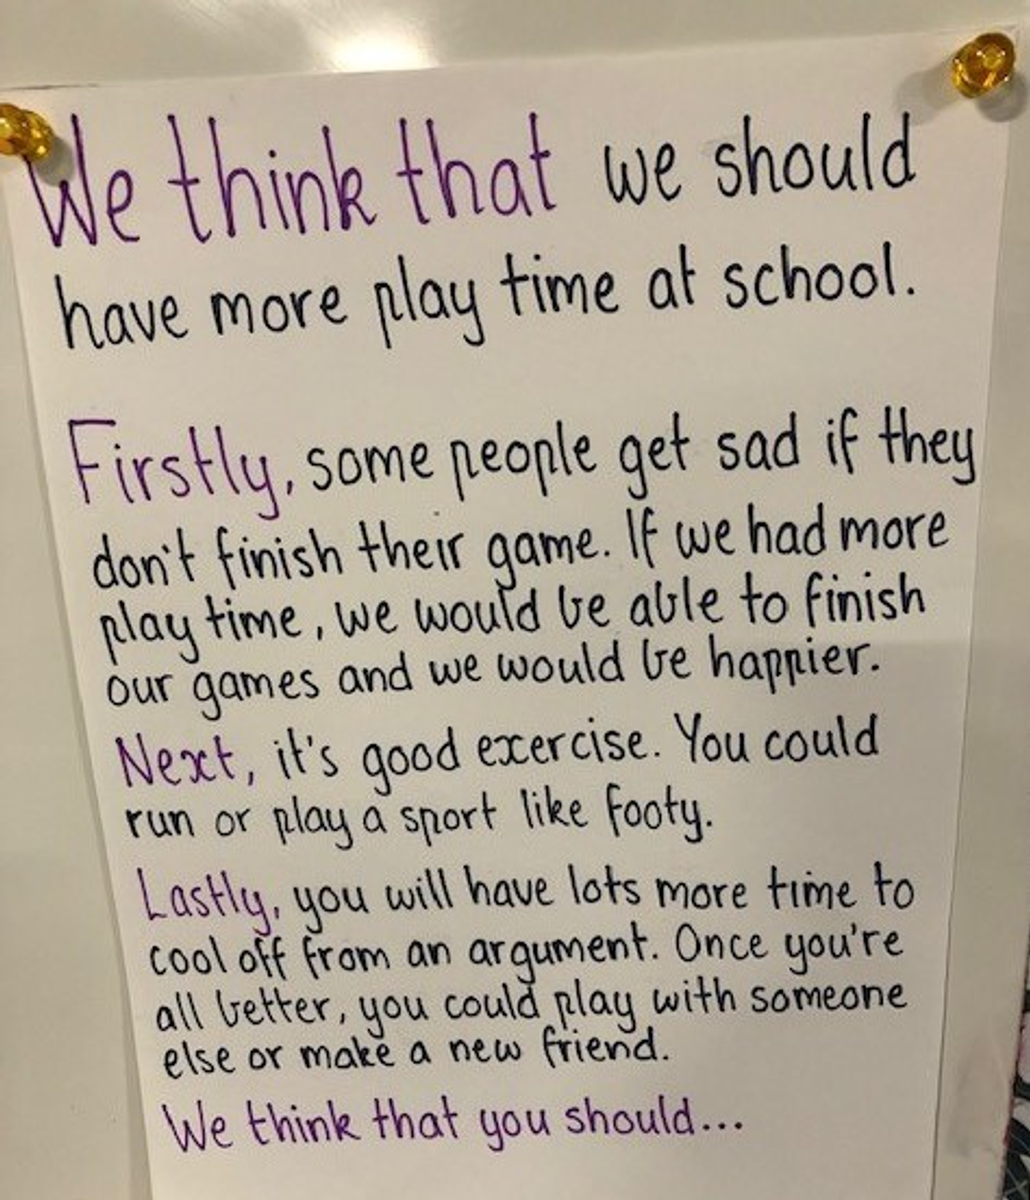 We think that we should
have more play time at school.
Firstly, some people get sad if they
don't finish their game. If we had more
play time, we would be able to finish
our games and we would be happier.
Next, it's good exercise. You could
run or play a sport like footy.
Lastly, you will have lots more time to
cool off from an argument. Once you're
all better, you could play with someone
else or make a new friend.
We think that you should...